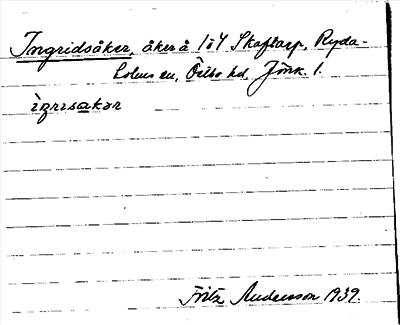 Ingridsåker, åker å 1ö4 Skaftarp, Ryda-
holms sn, Östbo hd, Jönk. l.
ìŋrisakər
Fritz Andersson 1939.